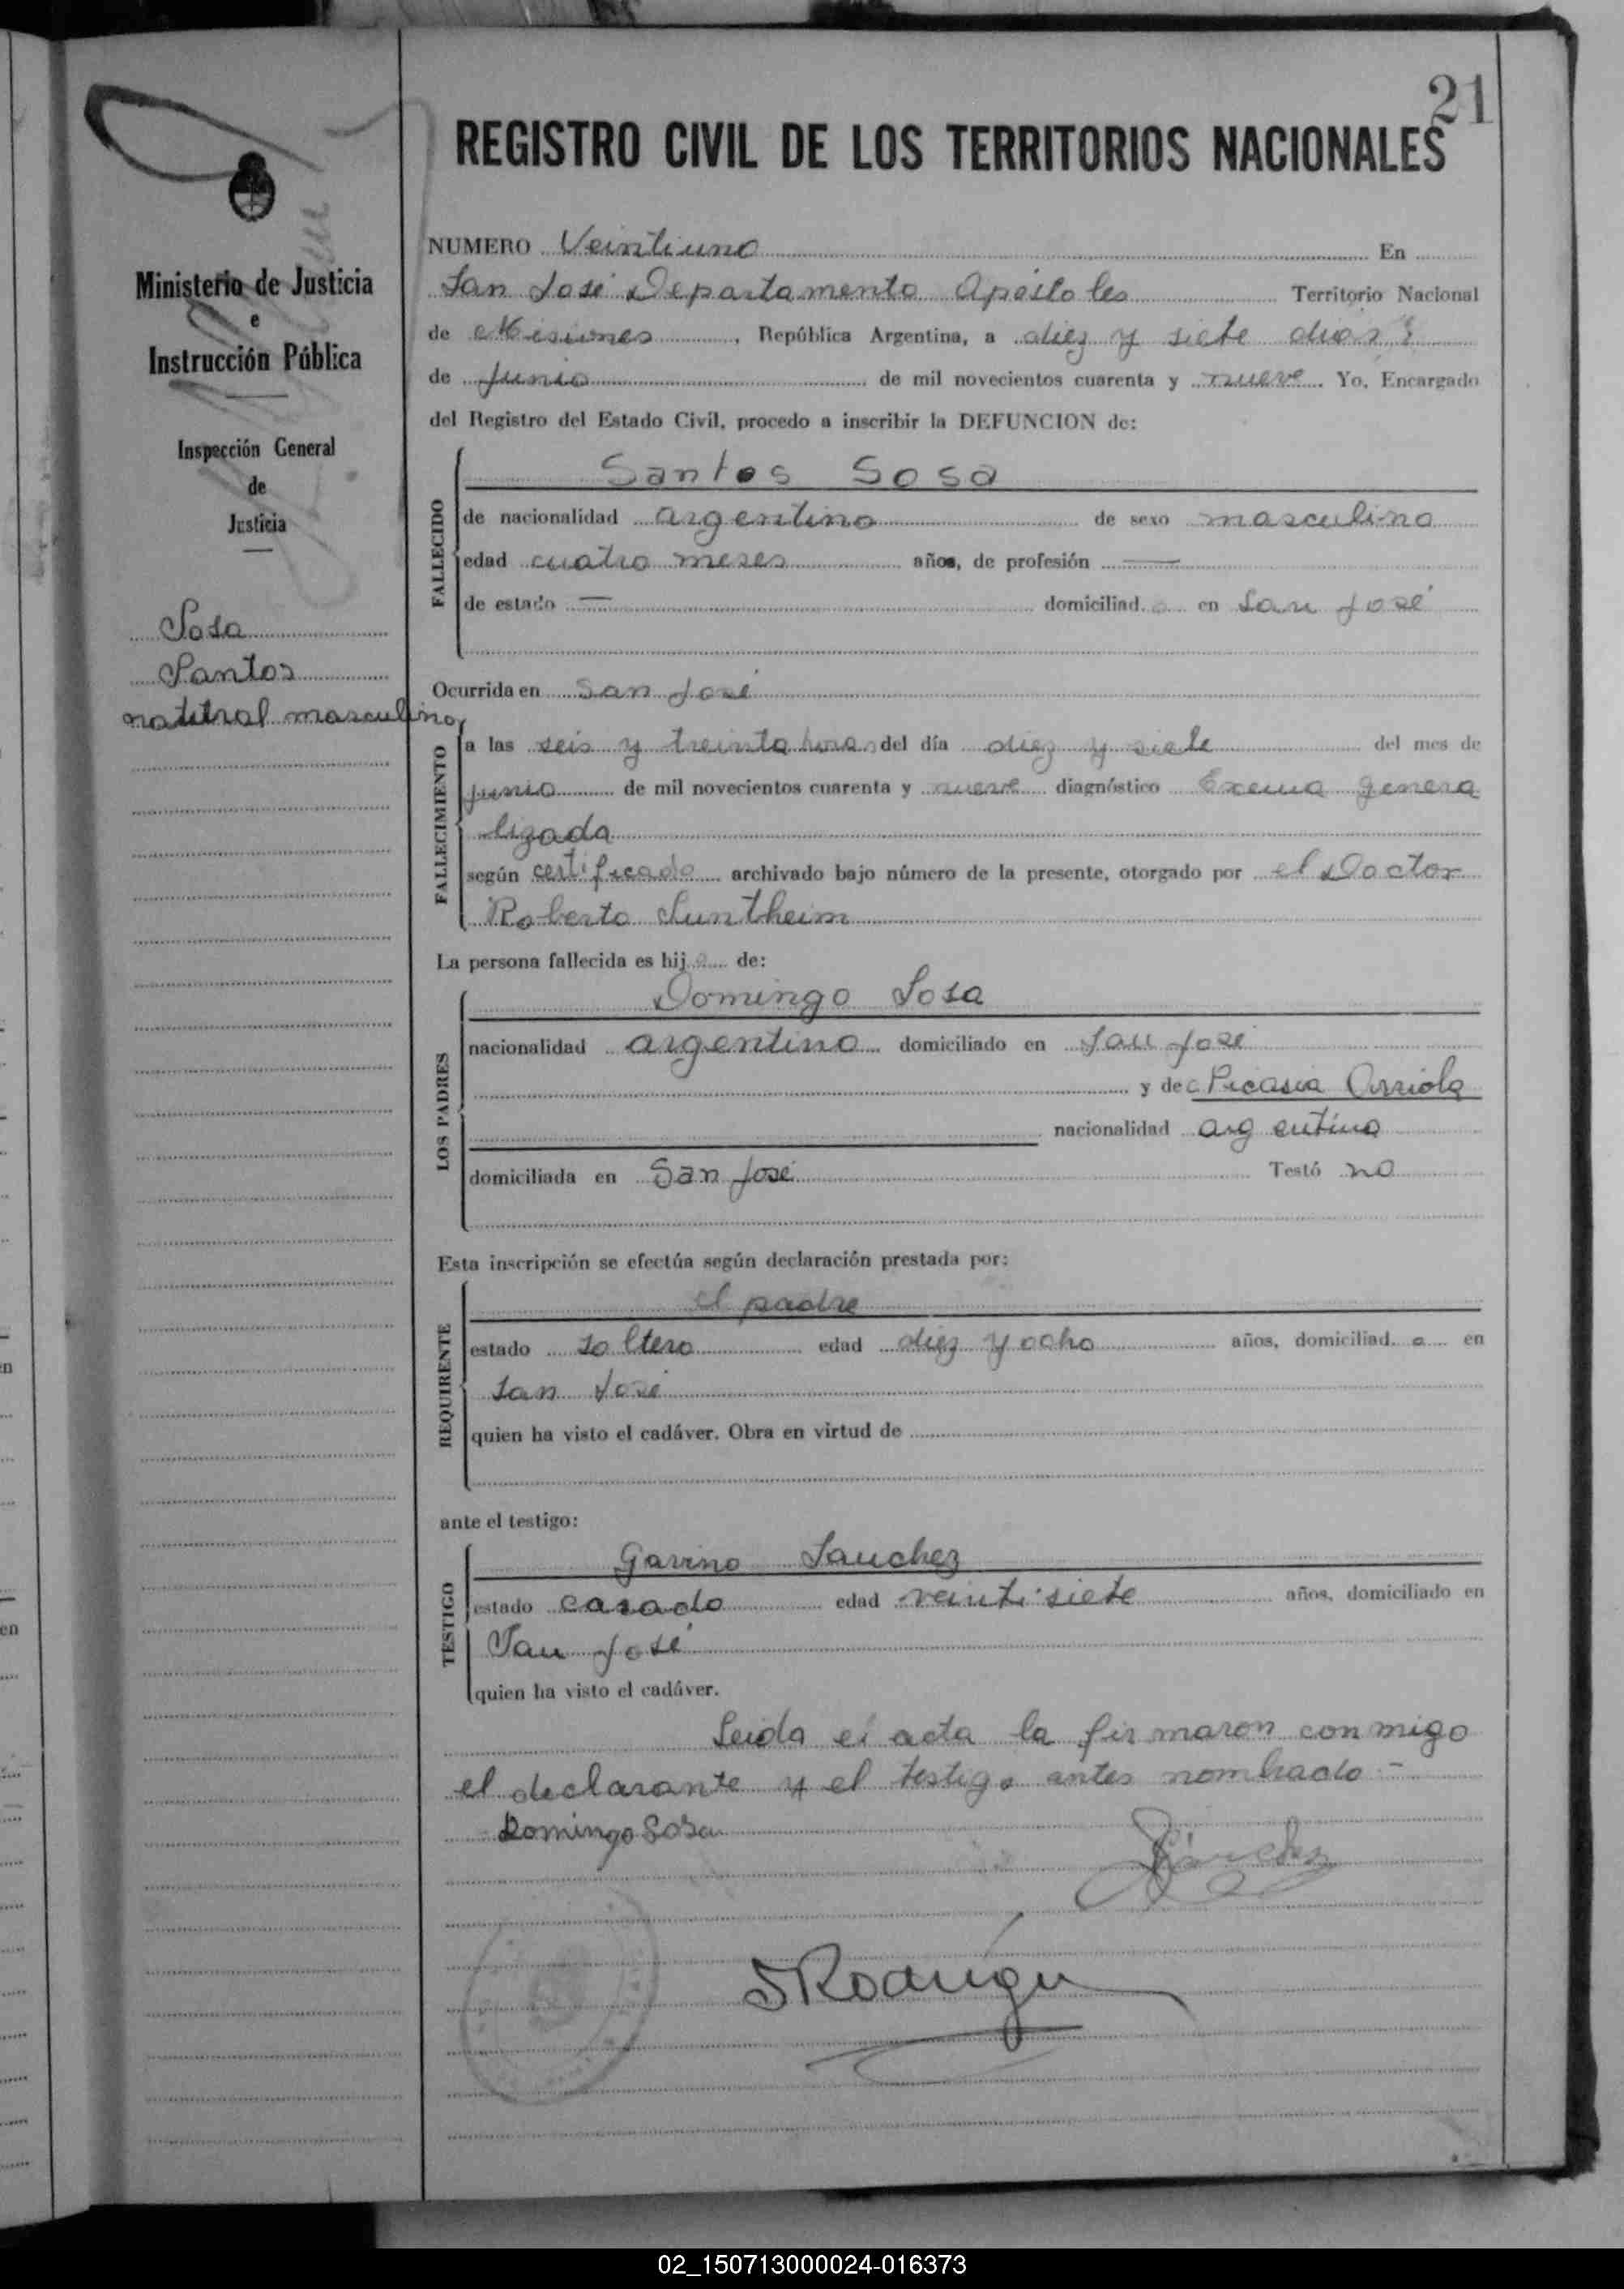 21
REGISTRO CIVIL DE LOS TERRITORIOS NACIONALES
Ministerio de Justicia
e
Instrucción Pública
Inspección General
de
Justicia
Sosa
Santos
natural masculino
NUMERO Veintiuno En
San José Departamento Apóstoles Territorio Nacional
de Misiones, República Argentina, a diez y siete dias
de Junio de mil novecientos cuarenta y nueve. Yo, Encargado
del Registro del Estado Civil, procedo a inscribir la DEFUNCION de:
FALLECIDO
Santos Sosa
de nacionalidad argentino de sexo masculino
edad cuatro meses años, de profesión —
de estado — domiciliad o en San José
Ocurrida en San José
FALLECIMIENTO
a las seis y treinta horas del día diez y siete del mes de
junio de mil novecientos cuarenta y nueve diagnóstico Exema genera
lizada
según certificado archivado bajo número de la presente, otorgado por el Doctor
Roberto Suntheim
La persona fallecida es hij o de:
LOS PADRES
Domingo Sosa
nacionalidad argentino domiciliado en San José
y de Picasia Arriola
nacionalidad argentina
domiciliada en San José Testó no
Esta inscripción se efectúa según declaración prestada por:
REQUIRENTE
el padre
estado soltero edad diez y ocho años, domiciliad o en
San José
quien ha visto el cadáver. Obra en virtud de
ante el testigo:
TESTIGO
Gavino Sanchez
estado casado edad veintisiete años, domiciliado en
San José
quien ha visto el cadáver.
Leida el acta la firmaron conmigo
el declarante y el testigo antes nombrado -
Domingo Sosa
Sánchez
Rodrígu
02_150713000024-016373